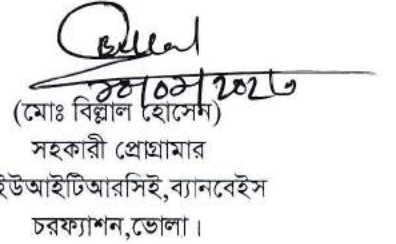 Billal
(মোঃ বিল্লাল হোসেন)
সহকারী প্রোগ্রামার
ইউআইটিআরসিই,ব্যানবেইস
চরফ্যাশন,ভোলা।